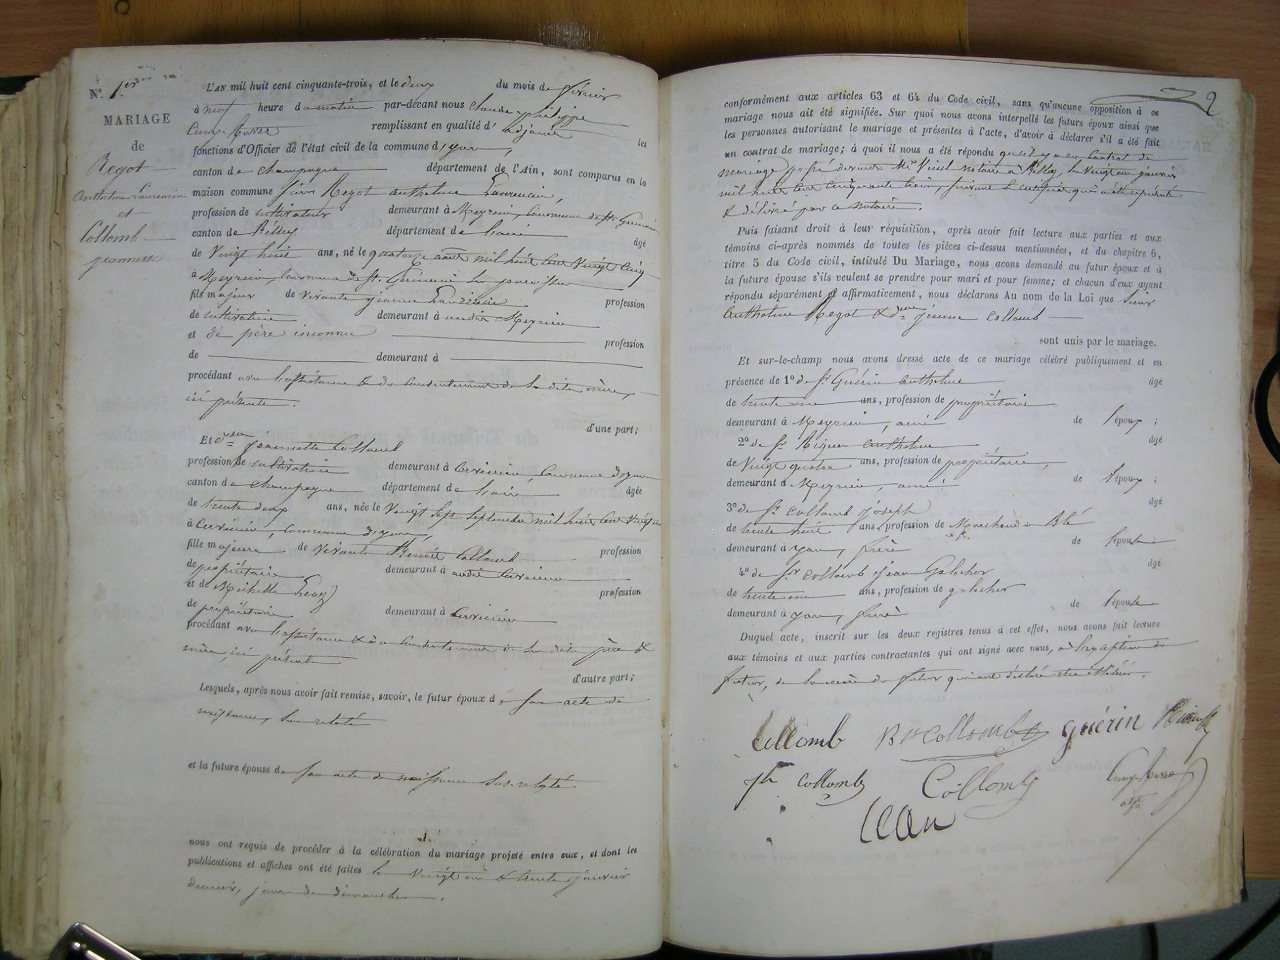 N.° 1.er
MARIAGE
de
Regot
Anthelme Laurencin
et
Collomb
jeannette
L'AN mil huit cent cinquante-trois, et le deux du mois de février
à neuf heure du matin par-devant nous Claude philippe
remplissant en qualité d'adjoint les
fonctions d'Officier de l'état civil de la commune d'yon,
canton de Champagne département de l'Ain, sont comparus en la
maison commune Sieur Regot anthelme Laurencin,
profession de cultivateur demeurant à Meyrieu, Commune de St Germain
canton de Belley département de l'ain âgé
de Vingt huit ans, né le quatorze août mil huit cent Vingt Cinq
à Meyrieu, Commune de St. Germain les paroisses
fils majeur de vivante jeanne Laurencin profession
de cultivatrice demeurant à audit Meyrieu
et de père inconnu profession
de demeurant à
procédant avec l'assistance & du consentement de la dite mère,
ici présente. d'une part;
Et dem jeannette Collomb
profession de cultivatrice demeurant à Cerveirieu, Commune d'yon
canton de Champagne département de l'ain âgée
de trente deux ans, née le Vingt Sept Septembre mil huit cent Vingt
à Cerveirieu, Commune d'yon,
fille majeure de vivants Benoît Collomb profession
de propriétaire demeurant à audit Cerveirieu
et de Michelle profession
de propriétaire demeurant à Cerveirieu
procédant avec l'assistance & du consentement de ses dits père &
mère, ici présents d'autre part;
Lesquels, après nous avoir fait remise, savoir, le futur époux de son acte de
naissance, Sus relaté
et la future épouse de son acte de naissance Sus relaté
nous ont requis de procéder à la célébration du mariage projeté entre eux, et dont les
publications et affiches ont été faites le Vingt trois & trente janvier
dernier, jours de dimanche.
2
conformément aux articles 63 et 64 du Code civil, sans qu'aucune opposition à ce
mariage nous ait été signifiée. Sur quoi nous avons interpellé les futurs époux ainsi que
les personnes autorisant le mariage et présentes à l'acte, d'avoir à déclarer s'il a été fait
un contrat de mariage; à quoi il nous a été répondu qu'il y a eu Contrat de
mariage passé devant Me notaire à Belley, le Vingt un janvier
mil huit cent Cinquante trois, suivant le certificat qui a été représenté
& délivré par ce notaire.
Puis faisant droit à leur réquisition, après avoir fait lecture aux parties et aux
témoins ci-après nommés de toutes les pièces ci-dessus mentionnées, et du chapitre 6,
titre 5 du Code civil, intitulé Du Mariage, nous avons demandé au futur époux et à
la future épouse s'ils veulent se prendre pour mari et pour femme; et chacun d'eux ayant
répondu séparément et affirmativement, nous déclarons Au nom de la Loi que Sieur
Anthelme Regot & dem jeanne Collomb
sont unis par le mariage.
Et sur-le-champ nous avons dressé acte de ce mariage célébré publiquement et en
présence de 1° de Sr Guérin Anthelme âgé
de trente ans, profession de propriétaire
demeurant à Meyrieu, ami de l'époux;
2° de Sr anthelme âgé
de Vingt quatre ans, profession de propriétaire,
demeurant à Meyrieu, ami de l'époux;
3° de Sr Collomb joseph âgé
de trente huit ans, profession de Marchand de Blé
demeurant à yon, frère de l'épouse
4° de Sr Collomb jean Galocher âgé
de trente ans, profession de galocher
demeurant à yon, frère de l'épouse
Duquel acte, inscrit sur les deux registres tenus à cet effet, nous avons fait lecture
aux témoins et aux parties contractantes qui ont signé avec nous, à l'exception du
futur, de la mère du futur qui ont déclaré être illitérés.
Collomb Bt Collomb guérin
jh Collomb Collomb
jean adjt